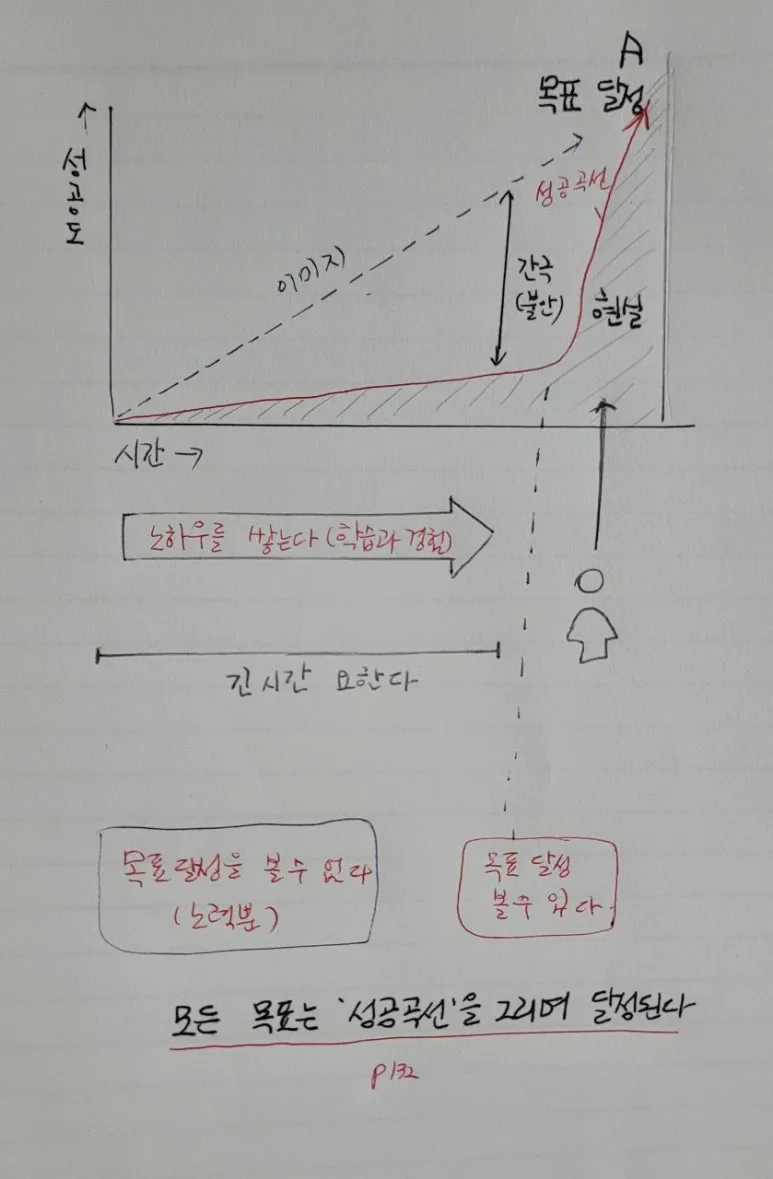 A
목표 달성
↑
성공도
성공곡선
이미지
간극
(불안)
현실
시간 →
노하우를 쌓는다 (학습과 경험)
긴 시간 요한다
목표달성을 볼 수 없다
(노력뿐)
목표 달성
볼 수 있다.
모든 목표는 '성공곡선'을 그리며 달성된다
p132